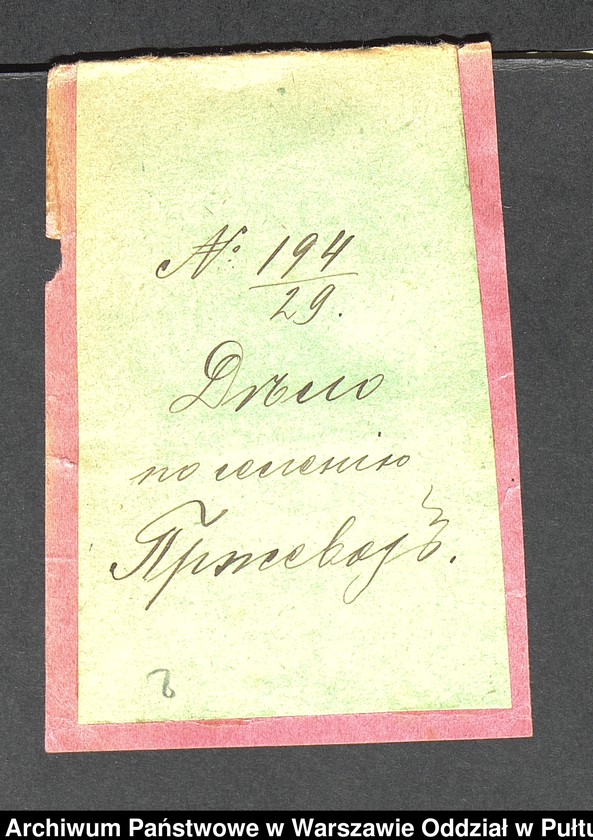 № 194
29.
Дѣло
по селенію
Пржеводъ.
Archiwum Państwowe w Warszawie Oddział w Pułtu